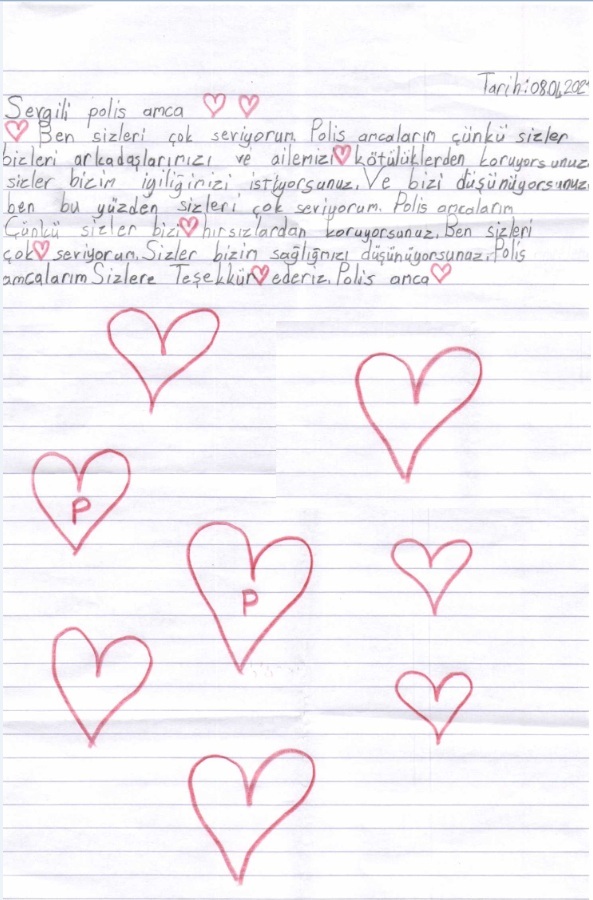 Tarih:08.04.202
Sevgili polis amca
Ben sizleri çok seviyorum Polis amcalarım çünkü sizler
bizleri arkadaşlarımızı ve ailemizi kötülüklerden koruyorsunuz
sizler bizim iyiliğimizi istiyorsunuz. Ve bizi düşünüyorsunuz
ben bu yüzden sizleri çok seviyorum. Polis amcalarım
Çünkü sizler bizi hırsızlardan koruyorsunuz. Ben sizleri
çok seviyorum. Sizler bizim sağlığmızı düşünüyorsunuz. Polis
amcalarım Sizlere Teşekkür ederiz. Polis amca
P
P